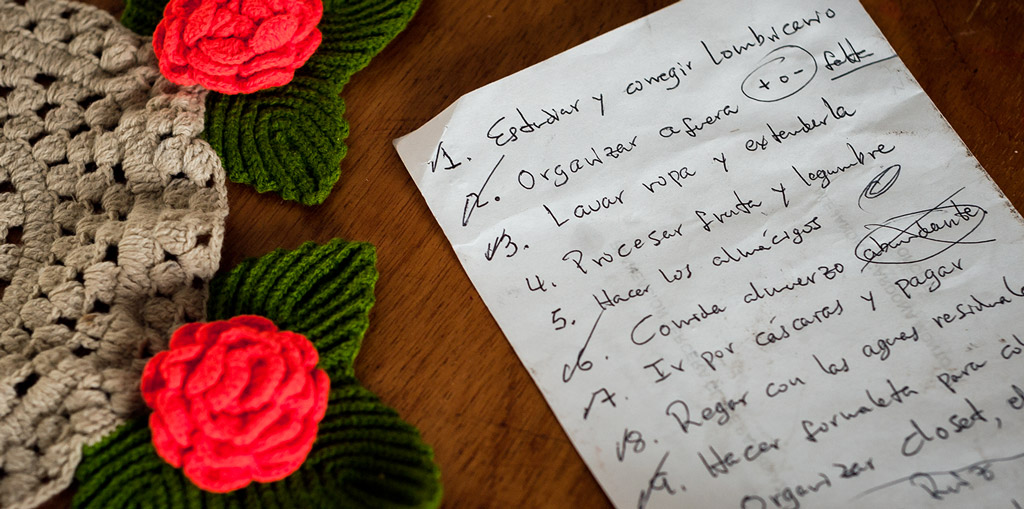 1. Estudiar y corregir Lombricario
2. Organizar afuera + o - falta
3. Lavar ropa y extenderla
4. Procesar fruta y legumbre
5. Hacer los almácigos
6. Comida almuerzo abundante
7. Ir por cáscaras y pagar
8. Regar con las aguas
9. Hacer formaleta para
Organizar closet,